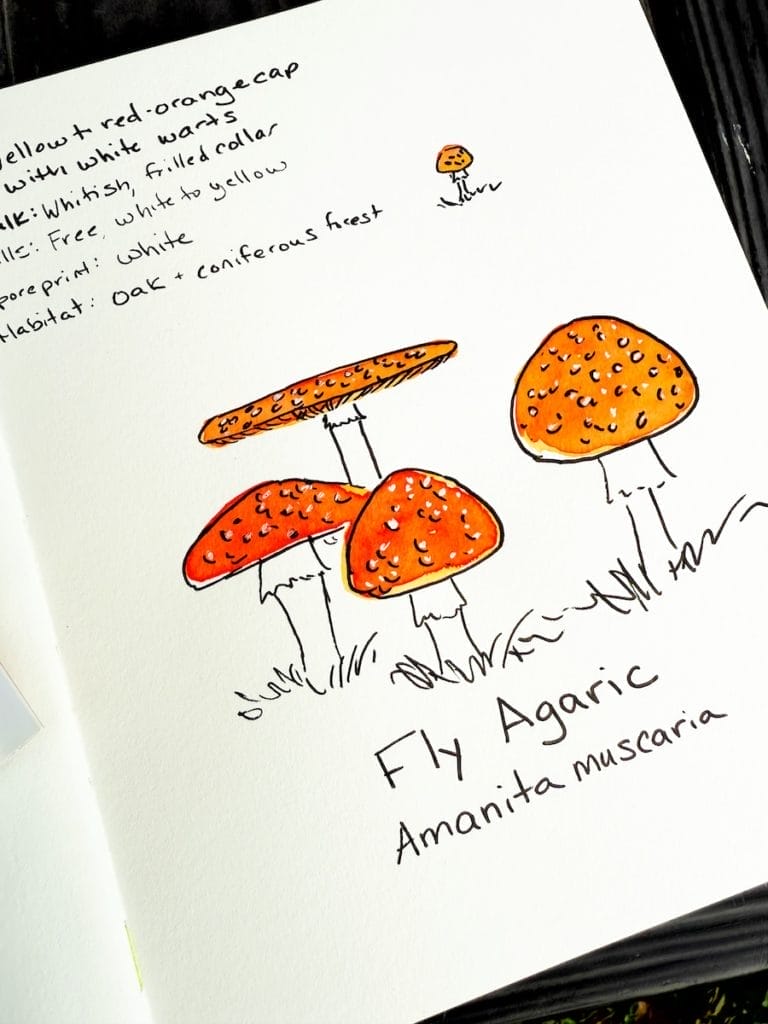 yellow + red-orange cap
with white warts
alk: Whitish, frilled collar
lls: Free, white to yellow
poreprint: white
Habitat: Oak + coniferous forest
Fly Agaric
Amanita muscaria